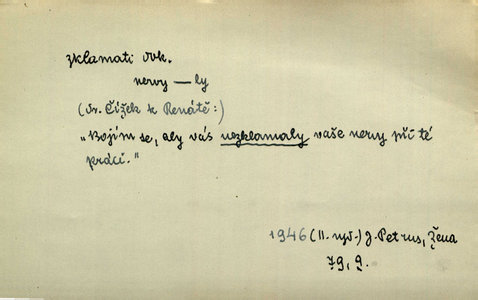 zklamati dok.
nervy —ly
(dr. Čížek k Renátě:)
„Bojím se, aby vás nezklamaly vaše nervy při té
práci."
1946 (II. vyd.) J. Petrus, Žena
79, 9.